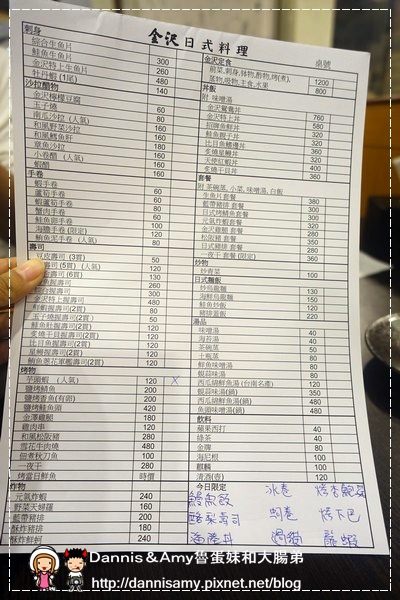 金沢日式料理
桌號
刺身
綜合生魚片 300
鮭魚生魚片 300
金沢特上生魚片 260
牡丹蝦 (1尾) 480
沙拉醋物 140
金沢檸檬豆腐
玉子燒 60
南瓜沙拉 (人氣) 60
和風野菜沙拉 80
和風鱈魚肝 160
章魚沙拉 180
小卷醋 (人氣) 160
蝦醋 160
手卷
蝦手卷
蘆筍手卷 60
蝦蘆筍手卷 60
蟹肉手卷 60
鮭魚手卷 80
海膽手卷 (限定) 100
鮪魚泥手卷 (人氣) 120
壽司
豆皮壽司 (3貫) 50
壽司 (5貫) (人氣) 120
壽司 (6貫) 130
握壽司 260
綜合握壽司 300
金沢特上握壽司 480
鮮蝦握壽司(2貫) 80
玉子燒握壽司(2貫) 50
鮭魚肚握壽司(2貫) 120
炙燒干貝握壽司(2貫) 120
比目魚握壽司(2貫) 120
星鰻握壽司(2貫) 120
鮪魚蔥花軍艦壽司(2貫) 120
烤物
芋頭蝦 (人氣) 120 X
鹽烤鯖魚 200
鹽烤香魚(有卵) 200
鹽烤鮭魚頭 420
金澤雞腿 180
雞肉串 120
和風松阪豬 280
雪花牛肉燒 480
佃煮秋刀魚 100
一夜干 280
烤當日鮮魚 時價
炸物
元氣炸蝦 240
野菜天婦羅 160
藍帶豬排 200
酥炸豬排 200
酥炸鮮蚵 240
金沢定食
前菜,刺身,鉢物,酢物,烤(煮), 1200
蒸物,吸物,主食,水果 800
丼飯
附 味噌湯
金沢鴛鴦丼
金沢特上丼 760
招牌魚鮮丼 580
鮭魚親子丼 320
比目魚鰭邊丼 320
炙燒星鰻丼 420
天使紅蝦丼 360
炙燒干貝丼 480
360
套餐
附 茶碗蒸, 小菜, 味噌湯, 白飯
生魚片套餐
藍帶豬排 套餐 380
日式烤鯖魚套餐 300
元氣炸蝦套餐 300
金沢雞腿 套餐 280
松阪豬 套餐 350
日式豬排 套餐 280
一夜干 套餐(限定) 360
炒物
炒青菜 100
日式麵飯
炒烏龍麵 150
海鮮烏龍麵 150
鮭魚炒飯 120
豬排蓋飯 220
湯品
味噌湯 40
海苔湯 40
茶碗蒸 50
土瓶蒸 80
鮮魚味噌湯 80
蜆蒜味湯 80
西瓜綿鮮魚湯 (台南名產) 120
蜆蒜味湯(鍋) 350
西瓜綿鮮魚湯(鍋) 480
魚頭味噌湯(鍋) 480
飲料
蘋果西打 40
綠茶 40
金牌 80
海尼根 100
麒麟 100
清酒(壺) 120
今日限定
冰卷
烤下巴
龍蝦
Dannis＆Amy魯蛋妹和大腸弟
http://dannisamy.pixnet.net/blog